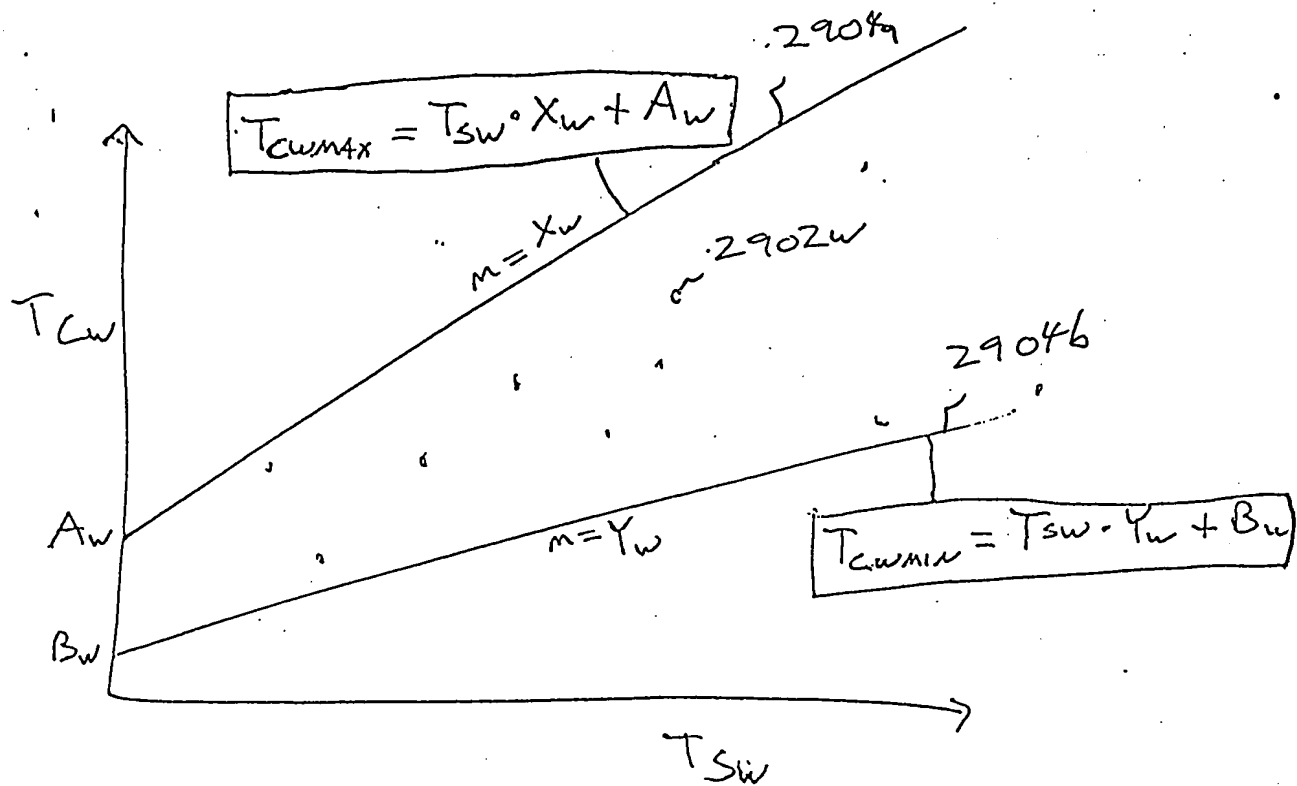 2904a
T_CWMAX = T_SW · X_W + A_W
m = X_W
2902w
T_CW
2904b
A_W
m = Y_W
T_CWMIN = T_SW · Y_W + B_W
B_W
T_SW